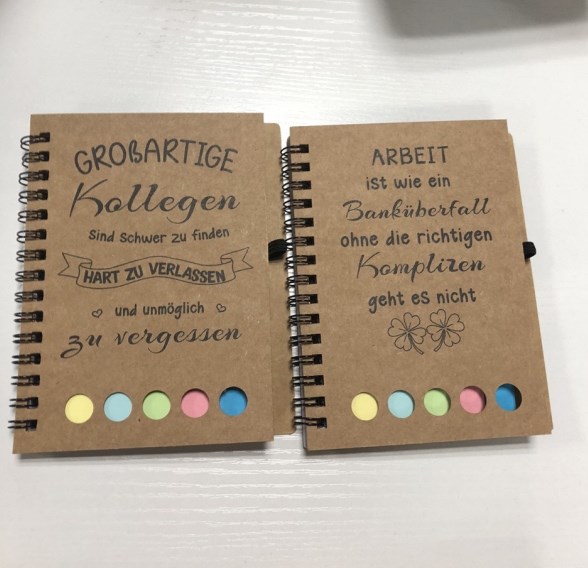 GROßARTIGE
Kollegen
sind schwer zu finden
HART ZU VERLASSEN
und unmöglich
zu vergessen
ARBEIT
ist wie ein
Banküberfall
ohne die richtigen
Komplizen
geht es nicht